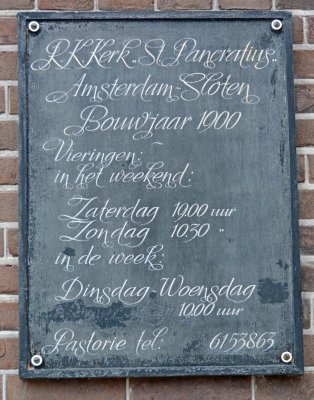 R.K.Kerk „St. Pancratius„
Amsterdam-Sloten
Bouwjaar 1900
Vieringen:
in het weekend:
Zaterdag 19.00 uur
Zondag 10.30 "
in de week:
Dinsdag-Woensdag
10.00 uur
Pastorie tel: 6153863